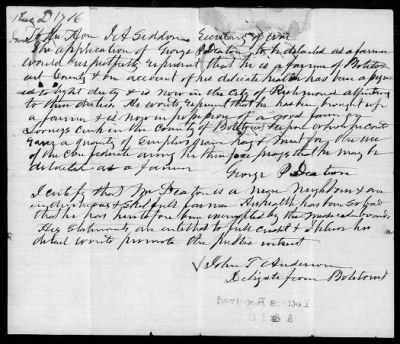 To the Hon J A Seddon Secretary of War
The application of George P Deaton to be detailed as a farmer
would respectfully represent that he is a farmer of Botetourt
County & on account of his delicate health has been assigned
to light duty & is now in the City of Richmond attending
to them duties. He would represent that he has been brought up
a farmer & is now in possession of a good farm on
Creek in the County of Botetourt upon which he can
a quantity of surplus grain hay & meat for the use
of the Confederate army he therefore prays that he may be
detailed as a farmer
George P Deaton
I certify that Mr Deaton is a near neighbour & an
industrious & skilful farmer his health has been so bad
that he has heretofore been exempted by the medical boards
His statements are entitled to full credit & I think his
detail would promote the public interest
John T Anderson
Delegate from Botetourt